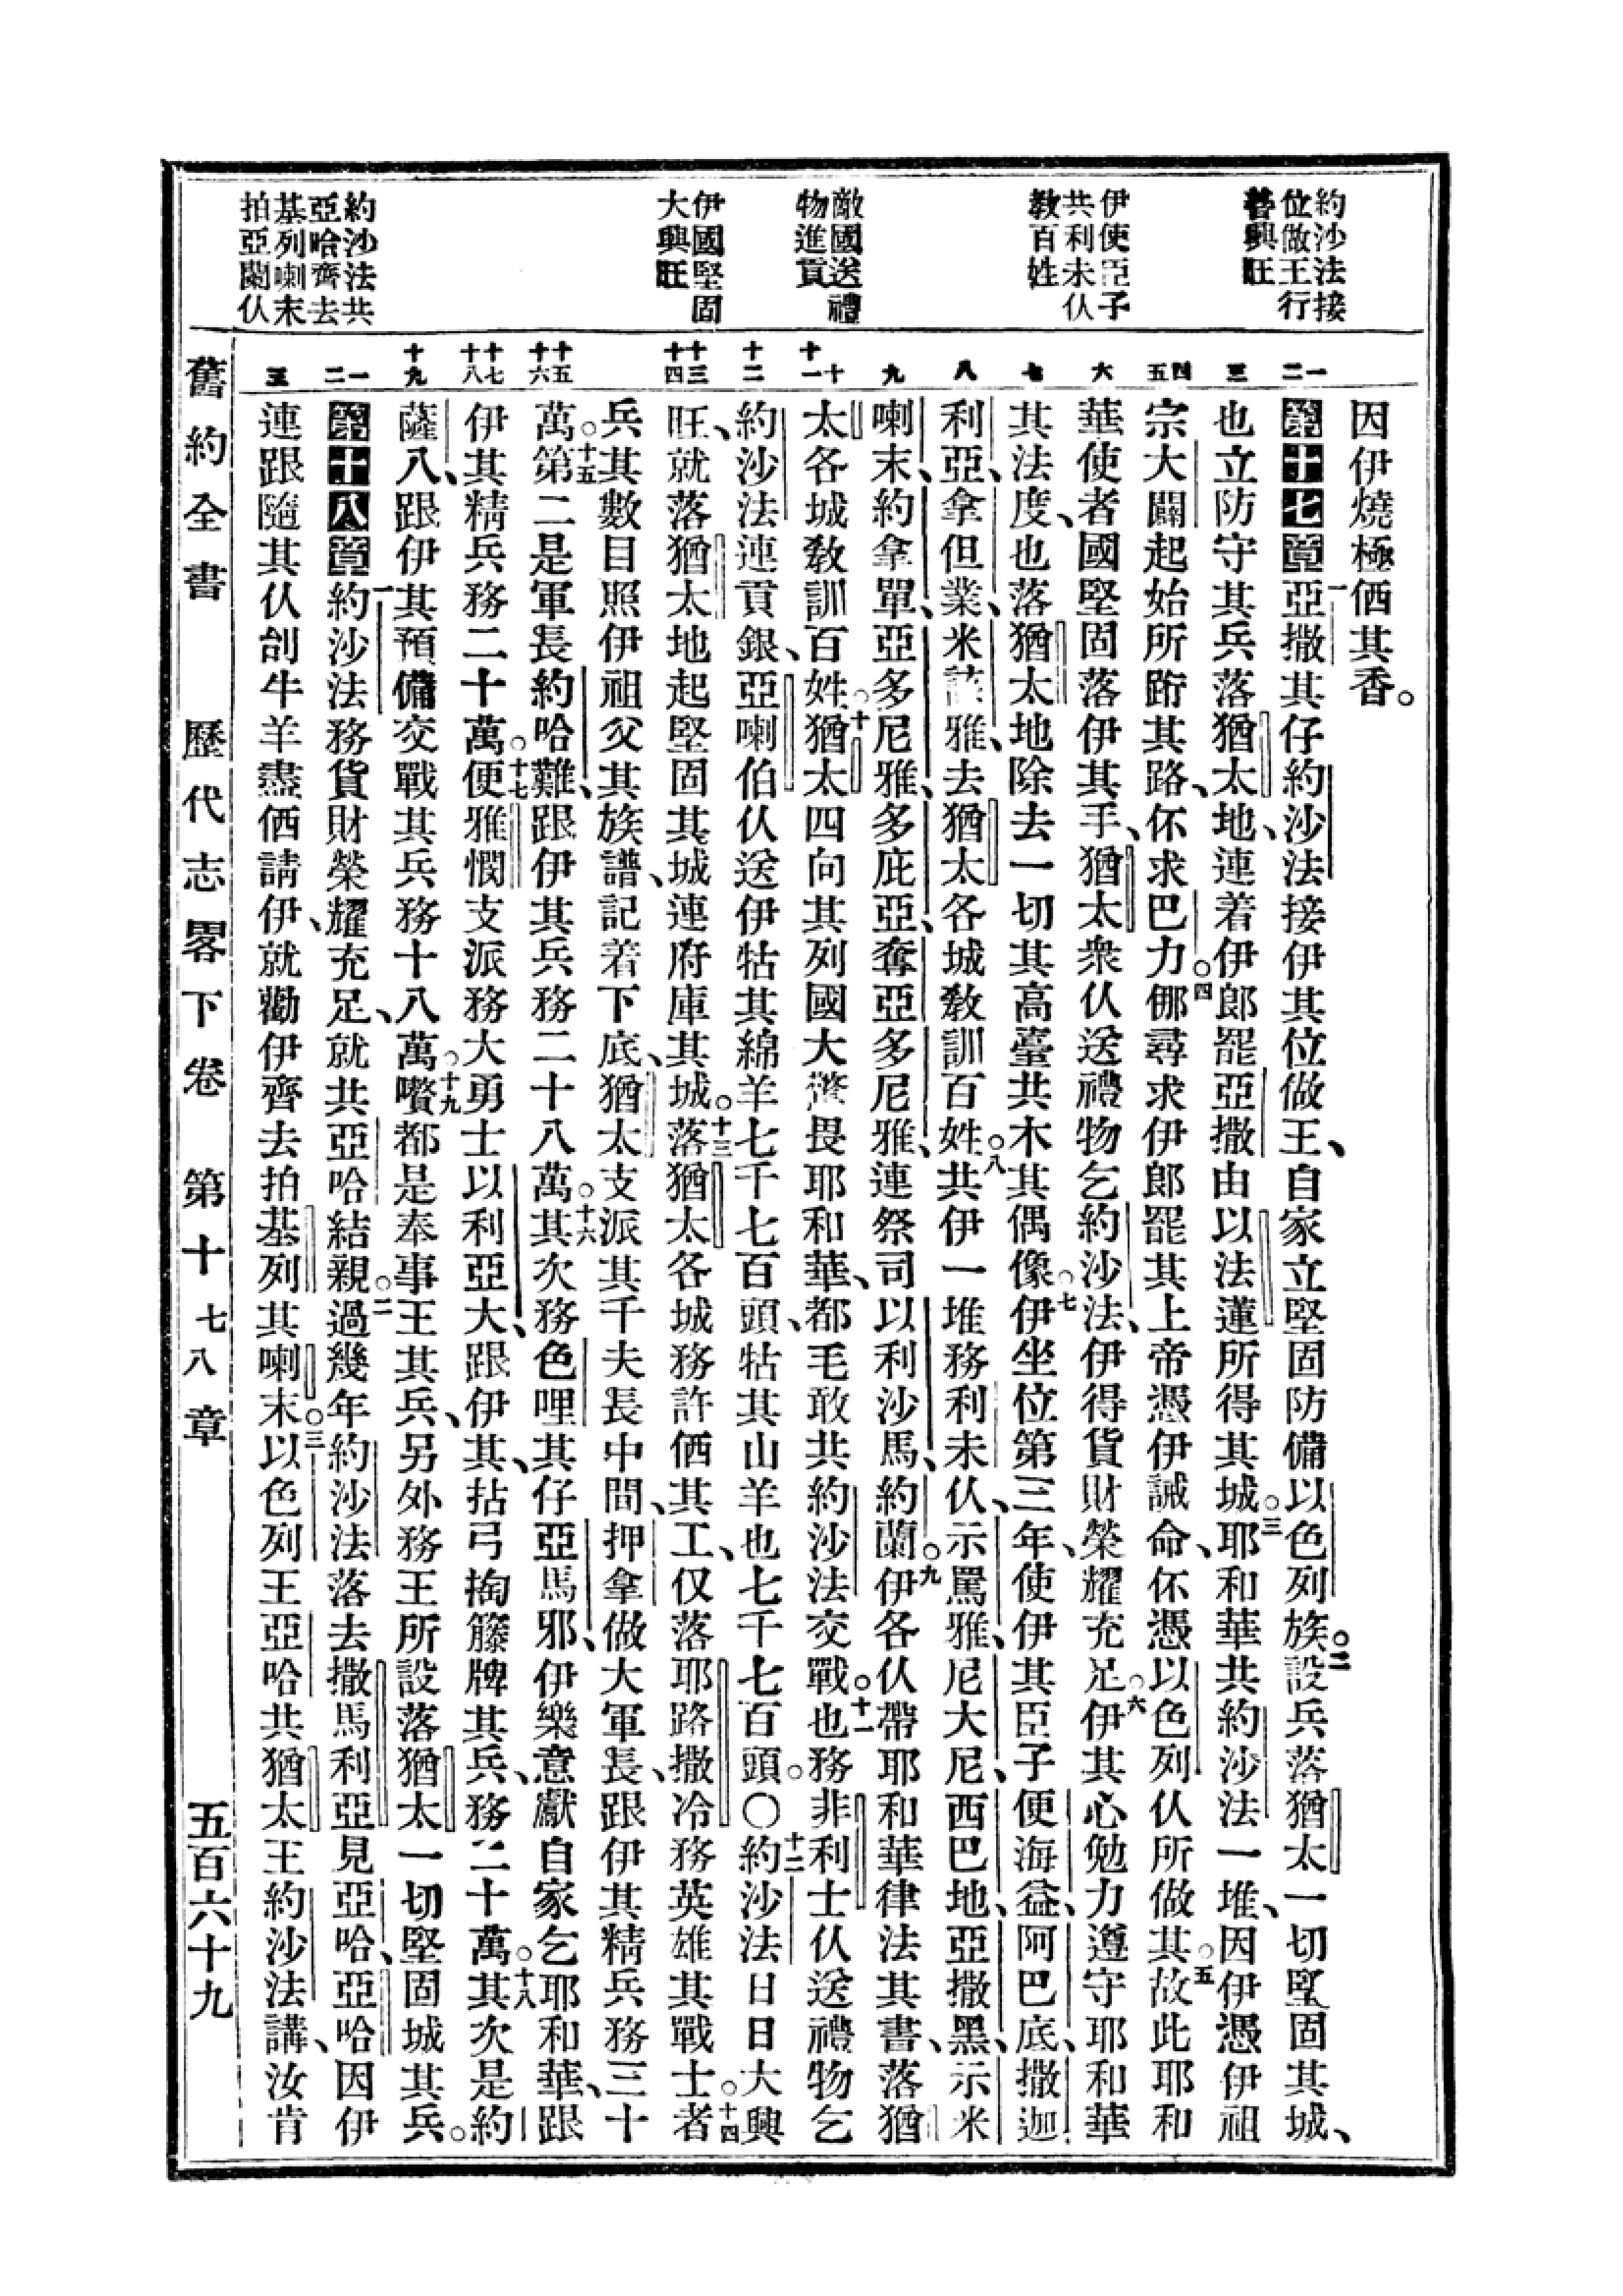 約沙法接
位做王行
善興旺
伊使臣子
共利未仫
教百姓
敵國送禮
物進貢
伊國堅固
大興旺
約沙法共
亞哈齊去
基列喇末
拍亞蘭仫
因伊燒極㑚其香。
第十七章一亞撒其仔約沙法接伊其位做王、自家立堅固防備以色列族。二設兵落猶太一切堅固其城、
也立防守其兵落猶太地、連着伊郎罷亞撒由以法蓮所得其城。三耶和華共約沙法一堆、因伊憑伊祖
宗大闢起始所跡其路、伓求巴力。四倻尋求伊郎罷其上帝憑伊誡命、伓憑以色列仫所做其。五故此耶和
華使者國堅固落伊其手、猶太衆仫送禮物乞約沙法、伊得貨財榮耀充足。六伊其心勉力遵守耶和華
其法度、也落猶太地除去一切其高臺共木其偶像。七伊坐位第三年、使伊其臣子便海益、阿巴底、撒迦
利亞、拿但業、米該雅、去猶太各城教訓百姓。八共伊一堆務利未仫、示罵雅、尼大尼、西巴地、亞撒黑、示米
喇末、約拿單、亞多尼雅、多庇亞、奪亞多尼雅、連祭司以利沙馬、約蘭。九伊各仫帶耶和華律法其書、落猶
太各城教訓百姓。十猶太四向其列國大驚畏耶和華、都毛敢共約沙法交戰。十一也務非利士仫送禮物乞
約沙法連貢銀、亞喇伯仫送伊牯其綿羊七千七百頭、牯其山羊也七千七百頭。〇十二約沙法日日大興
旺、就落猶太地起堅固其城連府庫其城。十三落猶太各城務許㑚其工、仅落耶路撒冷務英雄其戰士。十四者
兵其數目照伊祖父其族譜、記着下底、猶太支派其千夫長中間、押拿做大軍長、跟伊其精兵務三十
萬。十五第二是軍長約哈難、跟伊其兵務二十八萬。十六其次務色哩其仔亞馬邪、伊樂意獻自家乞耶和華、跟
伊其精兵務二十萬。十七便雅憫支派務大勇士以利亞大、跟伊其、拈弓搊籐牌其兵、務二十萬。十八其次是約
薩八、跟伊其預備交戰其兵務十八萬。十九嚽都是奉事王其兵、另外務王所設落猶太一切堅固城其兵。
第十八章一約沙法務貨財榮耀充足、就共亞哈結親。二過幾年約沙法落去撒馬利亞見亞哈、亞哈因伊
連跟隨其仫刣牛羊盡㑚請伊、就勸伊齊去拍基列其喇末。三以色列王亞哈共猶太王約沙法講、汝肯
舊約全書 歷代志畧下卷 第十七八章 五百六十九